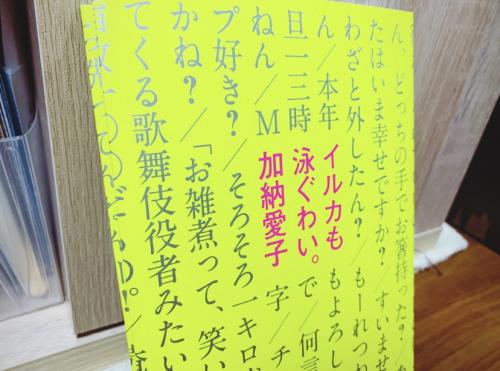 ん、どっちの手でお箸持った？／
たはいま幸せですか？／すいませ
わざと外したん？／もーれつ
ん／本年
イルカも
もよろし
旦二三時
泳ぐわい。
で／何言
ねん／M
加納愛子
字／チ
プ好き？／そろそろ一キロ
かね？／「お雑煮って、笑い
てくる歌舞伎役者みたい